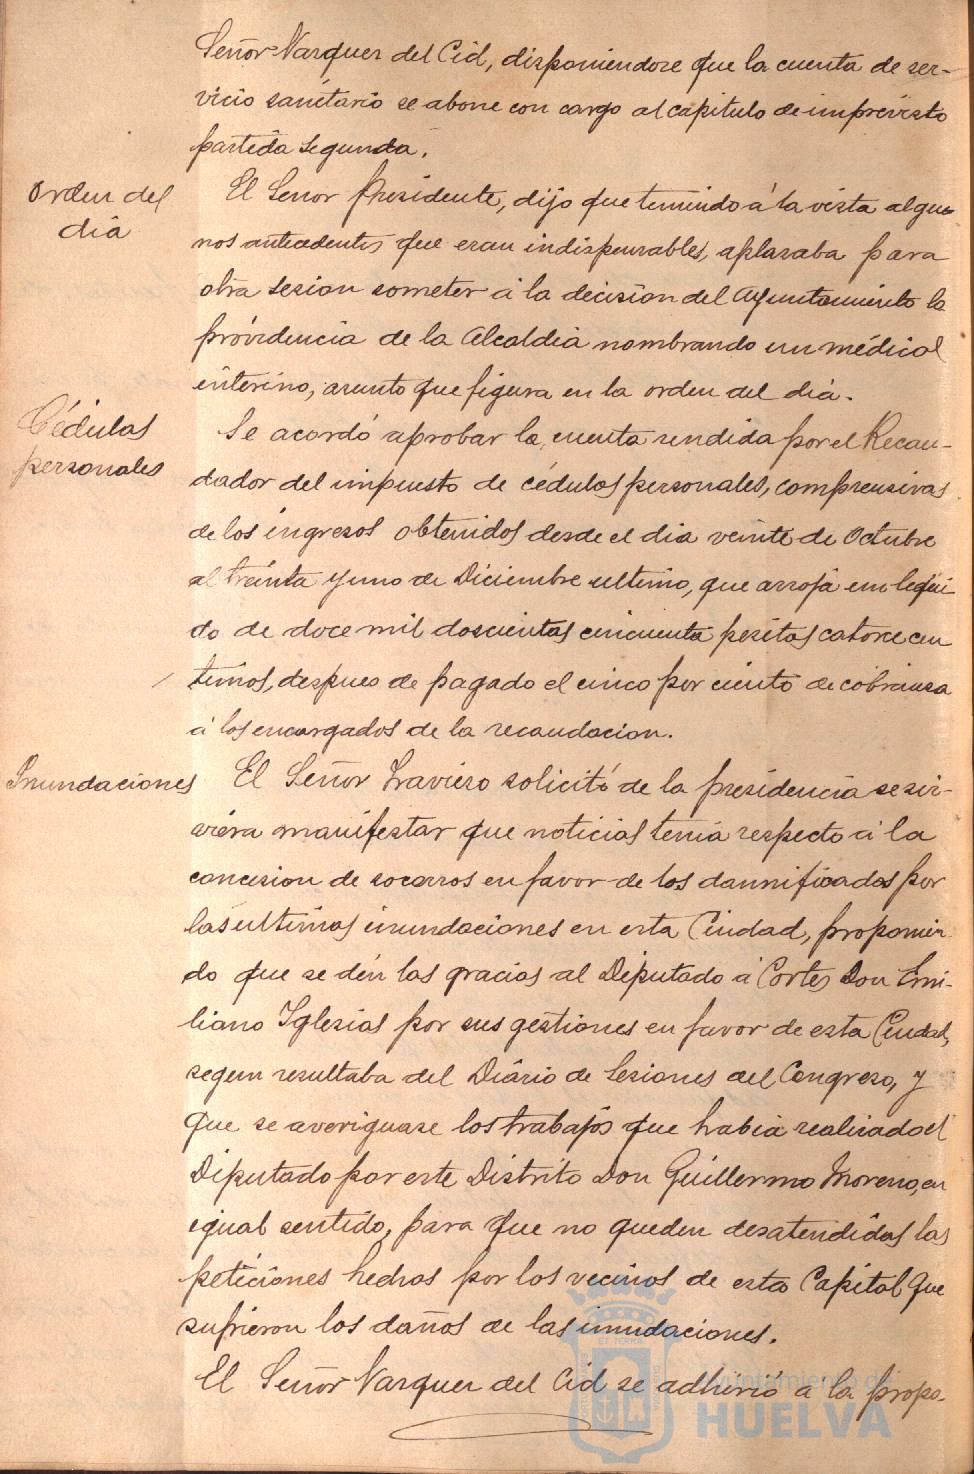 Señor Vazquez del Cid, disponiendose que la cuenta de ser-
vicio sanitario se abone con cargo al capitulo de imprevisto
partida segunda.
Orden del
dia
El Señor Presidente, dijo que teniendo á la vista algu-
nos antecedentes que eran indispensables, aplazaba para
otra sesion someter á la decision del Ayuntamiento la
providencia de la Alcaldia nombrando un médico
interino, asunto que figura en la orden del dia.
Cédulas
personales
Se acordó aprobar la cuenta rendida por el Recau-
dador del impuesto de cédulas personales, comprensivas
de los ingresos obtenidos desde el dia veinte de Octubre
al treinta y uno de Diciembre ultimo, que arroja un liqui
do de doce mil doscientas cincuenta pesetas catorce cen
timos, despues de pagado el cinco por ciento de cobranza
á los encargados de la recaudacion.
Inundaciones
El Señor Travieso solicitó de la presidencia se sir-
viera manifestar que noticias tenia respecto á la
concesion de socorros en favor de los damnificados por
las ultimas inundaciones en esta Ciudad, proponien
do que se dén las gracias al Diputado á Cortes Don Emi-
liano Iglesias por sus gestiones en favor de esta Ciudad,
segun resultaba del Diario de Sesiones del Congreso, y
que se averiguase los trabajos que habia realizado el
Diputado por este Distrito Don Guillermo Moreno, en
igual sentido, para que no queden desatendidas las
peticiones hechas por los vecinos de esta Capital que
sufrieron los daños de las inundaciones.
El Señor Vazquez del Cid se adhirió á la propo-
Ayuntamiento de
HUELVA